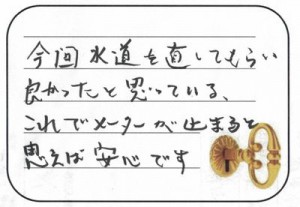 今回水道を直してもらい
良かったと思っている、
これでメーターが止まると
思えば安心です